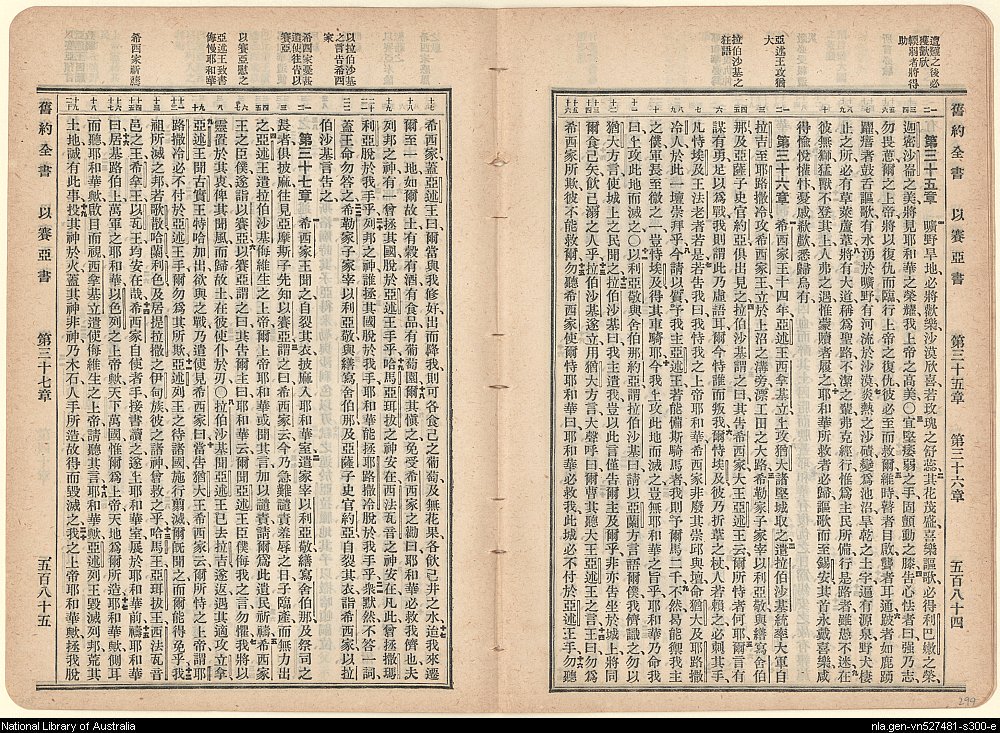 舊約全書 以賽亞書 第三十五章 第三十六章 五百八十四
獲歡欣
懦弱者將得
助
亞述王攻猶
大
拉伯沙基之
狂語
第三十五章 曠野旱地必將歡樂沙漠欣喜若玫瑰之舒蕊其花茂盛喜樂謳歌必得利巴嫩之榮
迦密沙崙之美將見耶和華之榮耀我上帝之高美〇宜堅痿弱之手固顫動之膝告心怯者曰強乃志
勿畏葸爾之上帝將以復仇而臨行上帝之復仇彼必至而救爾維時瞽者目啟聾者耳通跛者如鹿踴
躍瘖者鼓舌謳歌有水湧於曠野有河流於沙漠炎熱之沙磧變為池沼旱乾之土宇遍有源泉野犬棲
止之所必有草萊蘆葦將有大道稱為聖路不潔之輩弗克經行惟為主民所備行是路者雖愚不迷在
彼無獅猛獸不登其上人弗之遇惟蒙贖者履之耶和華所救者必歸謳歌而至錫安其首永戴喜樂咸
得愉悅憧忭憂戚欷歔悉歸烏有
第三十六章 希西家王十四年亞述王西拿基立上攻猶大諸堅城取之遣拉伯沙基統率大軍自
拉吉至耶路撒冷攻希西家王立於上沼之溝旁漂工田之大路希勒家子家宰以利亞敬與繕寫舍伯
那及亞薩子史官約亞俱出見之拉伯沙基謂之曰其告希西家大王亞述王云爾所恃者何耶爾言有
謀有勇足以為戰我則謂此乃虛語耳爾今恃誰而叛我爾恃埃及彼乃折葦之杖人若賴之必刺其手
凡恃埃及王法老者若是若告我曰我恃我之上帝耶和華希西家非廢其崇邱與壇命猶大及耶路撒
冷人於此一壇崇拜乎今請以質予我主亞述王若能備斯騎馬者我則予爾馬二千不然曷能禦我主
之僕軍長至微之一豈恃埃及得其軍騎耶今我上攻此地而滅之豈無耶和華之旨乎耶和華乃命我
曰上攻此地而滅之〇以利亞敬與舍伯那約亞謂拉伯沙基曰請以亞蘭方言語爾僕我儕識之勿以
猶大方言使城上之民聞之拉伯沙基曰我主遣我以此言僅告爾主及爾乎非亦告坐於城上將同
爾食己矢飲己溺之人乎拉伯沙基遂立用猶大方言大聲呼曰爾曹其聽大王亞述王之言王曰勿為
希西家所欺彼不能救爾勿聽希西家使爾恃耶和華曰耶和華必救我此城必不付於亞述王手勿聽
以拉伯沙基
之言告希西
家
希西家憂甚
遣使往告以
賽亞
以賽亞慰之
亞述王致書
侮慢耶和華
希西家祈禱
希西家蓋亞述王曰爾當與我修好出而降我則可各食己之葡萄及無花果各飲己井之水迨我來遷
爾至一地如爾故土有穀有酒有食品有葡萄園爾其慎之免受希西家之勸曰耶和華必救我儕也夫
列邦之神有一曾拯其國脫於亞述王手乎哈馬亞珥拔之神安在西法瓦音之神安在凡此曾拯撒瑪
利亞脫於我手乎列邦之神誰拯其國脫於我手耶和華能拯耶路撒冷脫於我手乎眾默然不答一詞
蓋王命勿答之希勒家子家宰以利亞敬與繕寫舍伯那及亞薩子史官約亞自裂其衣詣希西家以拉
伯沙基言告之
第三十七章 希西家王聞之自裂其衣披麻入耶和華室遣家宰以利亞敬繕寫舍伯那及祭司之
長者俱披麻往見亞摩斯子先知以賽亞謂之曰希西家云今乃急難譴責羞辱之日子臨產而無力出
之亞述王遣拉伯沙基侮維生之上帝爾上帝耶和華或聞其言加以譴責請爾為此遺民祈禱希西家
王之臣僕遂詣以賽亞以賽亞謂之曰其告爾主曰耶和華云爾聞亞述王臣僕侮我之言勿懼我將以
靈置於其衷俾其聞風而歸故土在彼使仆於刃〇拉伯沙基聞亞述王已去拉吉遂返遇其適攻立拿
亞述王聞古實王特哈加出欲與之戰乃遣使見希西家曰當告猶大王希西家云爾所恃之上帝謂耶
路撒冷必不付於亞述王手爾勿為其所欺亞述列王之待諸國施行翦滅爾既聞之而爾能得免乎我
祖所滅之邦若歌散哈蘭利色及居提拉撒之伊甸族彼之諸神曾救之乎哈馬王亞珥拔王西法瓦音
邑之王希拿王以瓦王均安在哉希西家自使者手接書讀之遂上耶和華室展於耶和華前禱耶和華
曰居基路伯上萬軍之耶和華以色列之上帝歟天下萬國惟爾為上帝天地為爾所造耶和華歟側耳
而聽耶和華歟啟目而視西拿基立遣使侮維生之上帝請聽其言耶和華歟亞述列王毀滅列邦荒其
土地誠有此事投其神於火蓋其神非神乃木石人手所造故得而毀滅之我之上帝耶和華歟拯我脫
舊約全書 以賽亞書 第三十七章 五百八十五
294
National Library of Australia
nla.gen-vn527481-s300-e